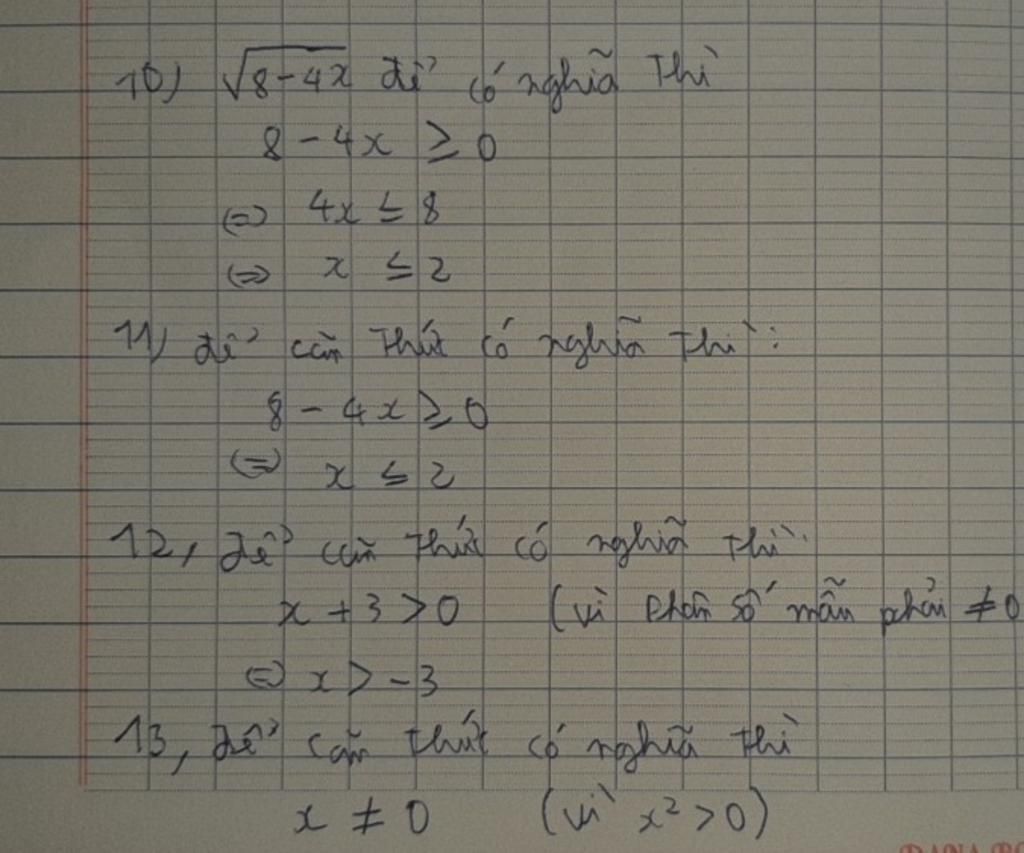 10) √8-4x để có nghĩa thì
8 - 4x ≥ 0
⇔ 4x ≤ 8
⇔ x ≤ 2
11, để căn thức có nghĩa thì:
8 - 4x ≥ 0
⇔ x ≤ 2
12, để căn thức có nghĩa thì:
x + 3 > 0 (vì phân số mẫu phải ≠ 0
⇔ x > -3
13, để căn thức có nghĩa thì
x ≠ 0 (vì x² > 0)